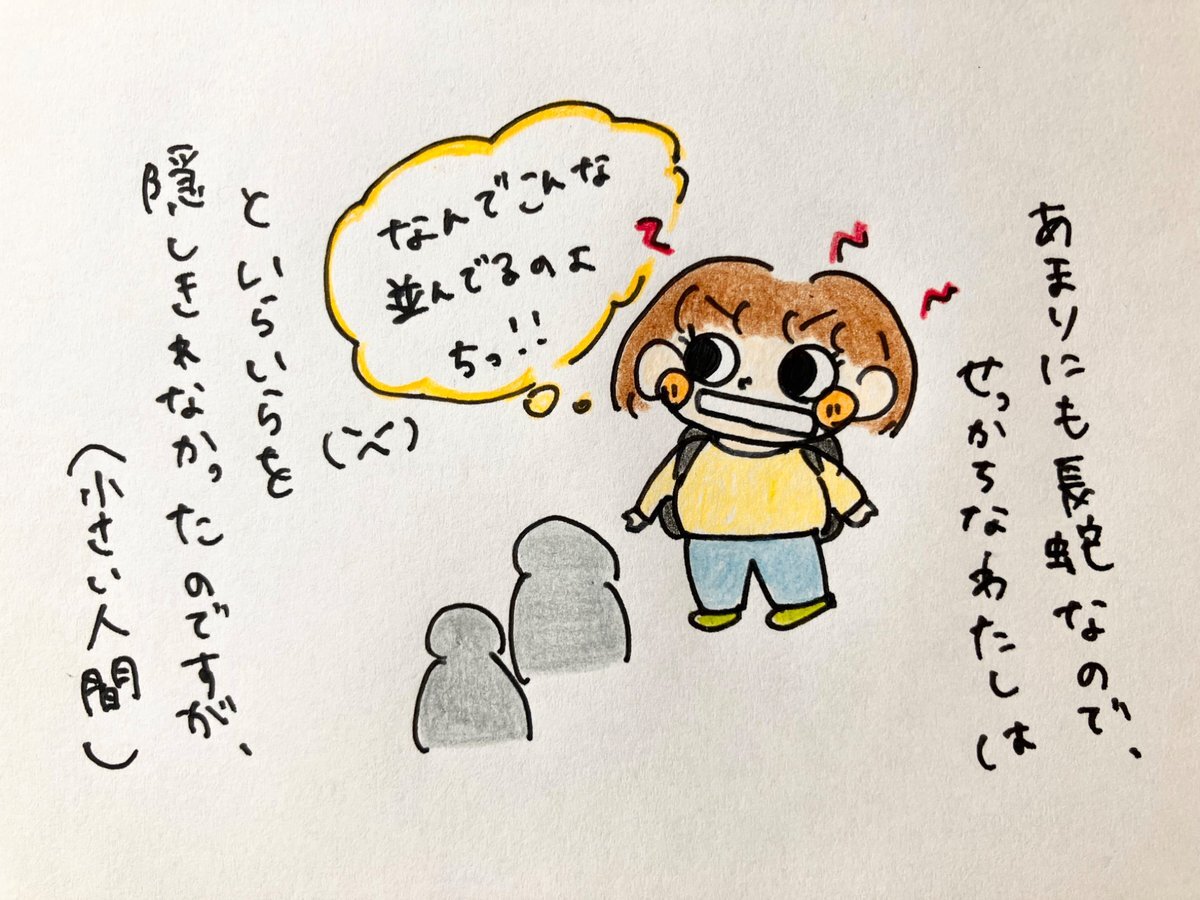 あまりにも長蛇なので、
せっかちなわたしは
なんでこんな
並んでるのよ
ちっ!!
といらいらを
隠しきれなかったのですが、
(小さい人間)